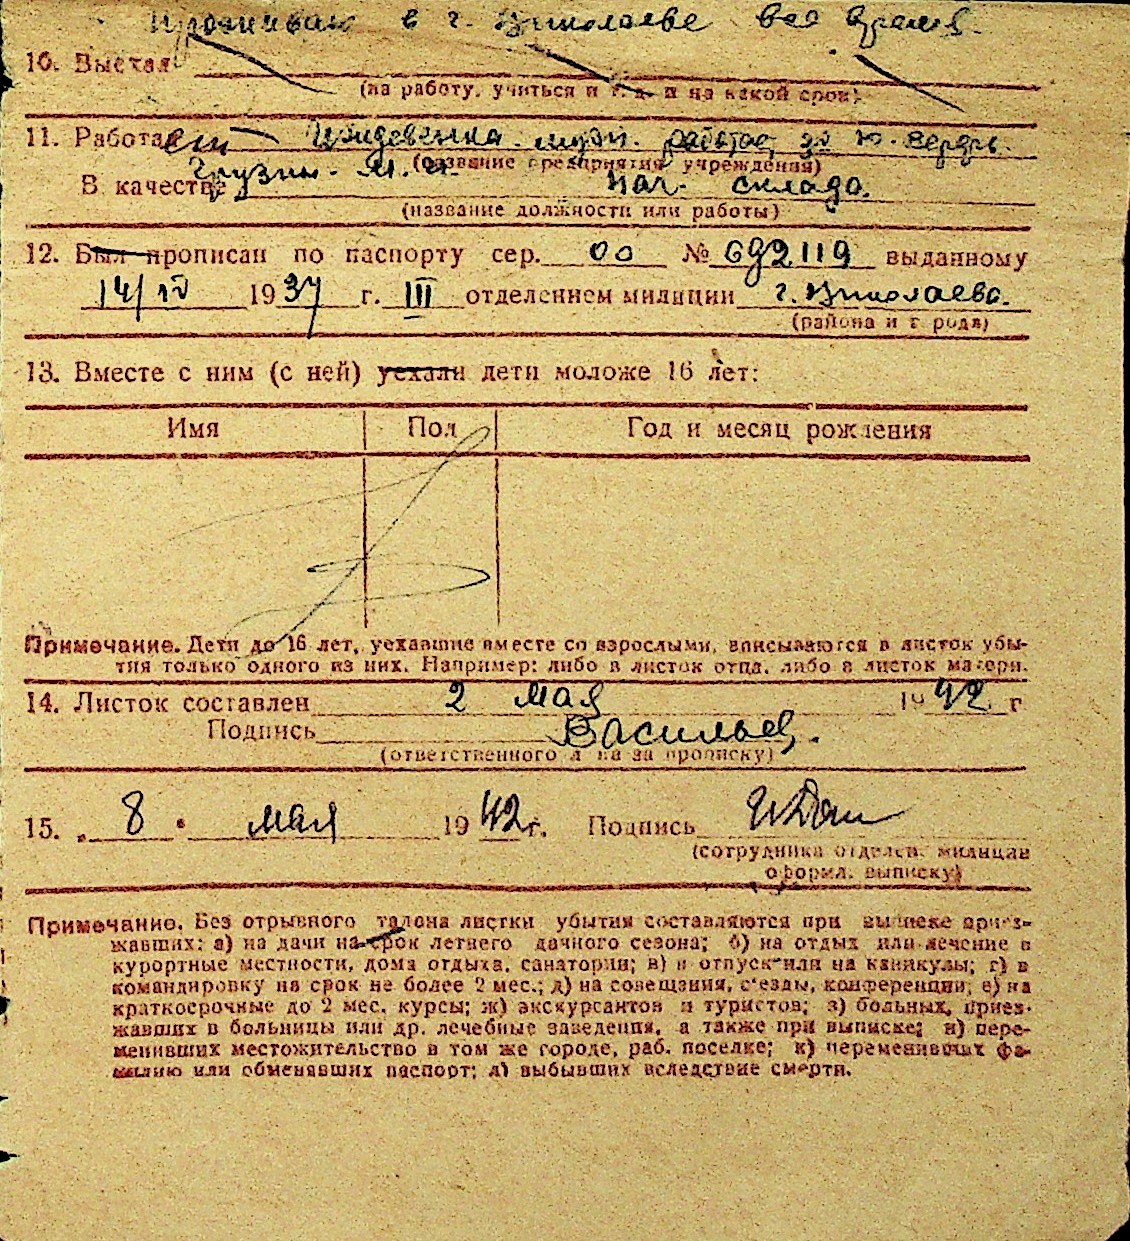 Проживал в г. Николаеве все время.
10. Выехал
(на работу, учиться и т. д. и на какой срок)
11. Работает Иждевенка. муж. работает
(название предприятия, учреждения)
Грузин. М. И.
В качестве нач. склада.
(название должности или работы)
12. Был прописан по паспорту сер. 00 № 692119 выданному
14/IV 1937 г. III отделением милиции г. Николаева.
(района и города)
13. Вместе с ним (с ней) уехали дети моложе 16 лет:
Имя Пол Год и месяц рождения
Примечание. Дети до 16 лет, уехавшие вместе со взрослыми, вписываются в листок убы-
тия только одного из них. Например: либо в листок отца, либо в листок матери.
14. Листок составлен 2 мая 1942 г
Подпись Васильев.
(ответственного лица за прописку)
15. „ 8 " мая 1942 г. Подпись
(сотрудника отделен. милиции
оформл. выписку)
Примечание. Без отрывного талона листки убытия составляются при выписке приез-
жавших: а) на дачи на срок летнего дачного сезона; б) на отдых или лечение в
курортные местности, дома отдыха, санатории; в) в отпуск или на каникулы; г) в
командировку на срок не более 2 мес.; д) на совещания, с'езды, конференции; е) на
краткосрочные до 2 мес. курсы; ж) экскурсантов и туристов; з) больных, приез-
жавших в больницы или др. лечебные заведения, а также при выписке; и) пере-
менивших местожительство в том же городе, раб. поселке; к) переменивших фа-
милию или обменявших паспорт; л) выбывших вследствие смерти.